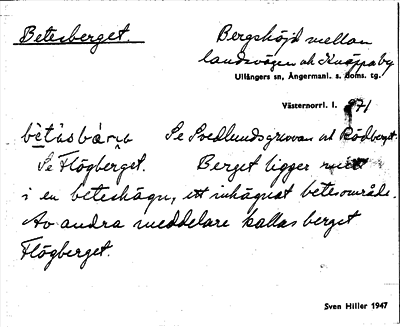 Betesberget.
Bergshöjd mellan
landsvägen och Knäppaby
Ullångers sn, Ångermanl. s. doms. tg.
Västernorrl. l. 871
Se Svedlundsgruvan och Rödberget.
Se Flögberget. Berget ligger
i en beteshägn, ett inhägnat betesområde.
Av andra meddelare kallas berget
Flögberget.
Sven Hiller 1947